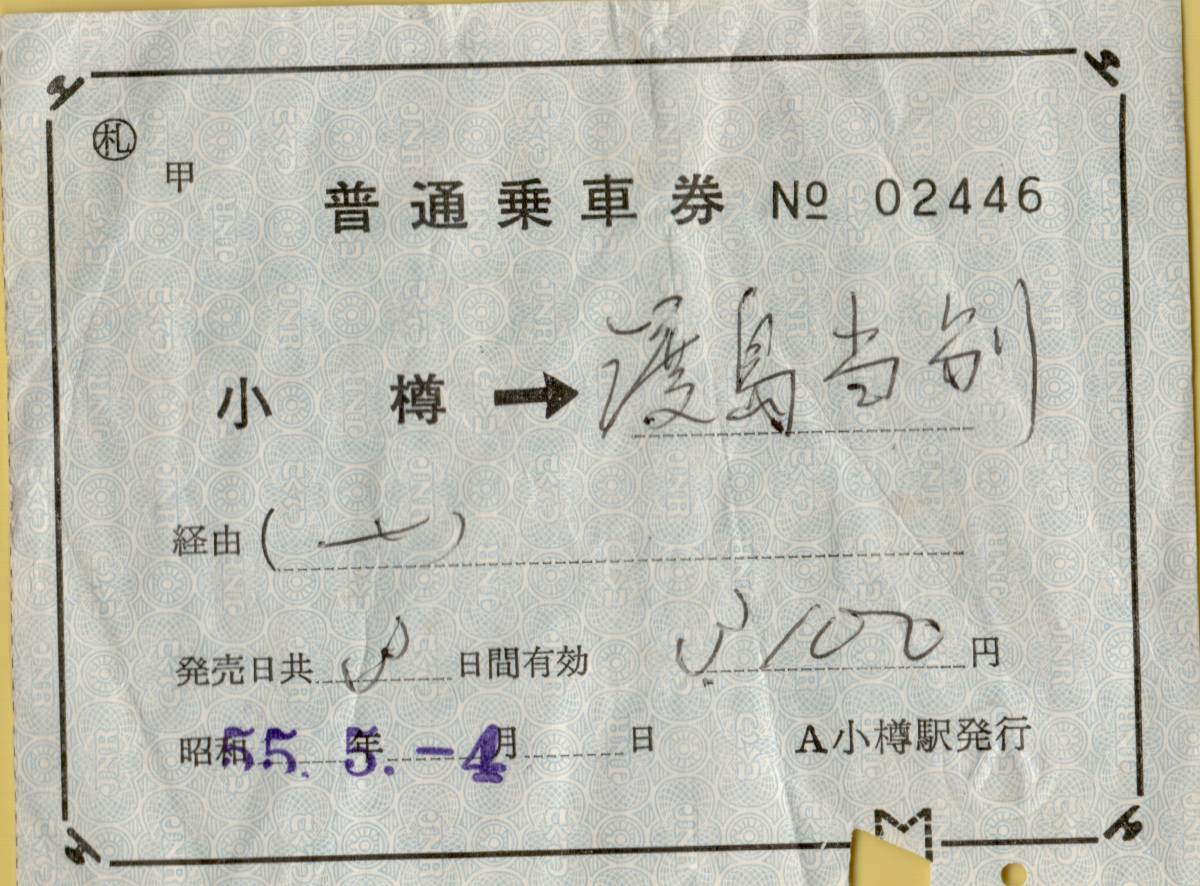 札
甲
普通乗車券 № 02446
小樽 ➡ 渡島当別
経由 ( )
発売日共 3 日間有効 3100 円
昭和 55. 年 5. -4 月 日 A小樽駅発行